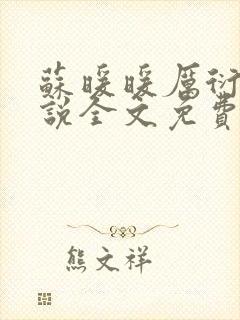 蘇暖暖厲衍
說全文免費
熊文祥